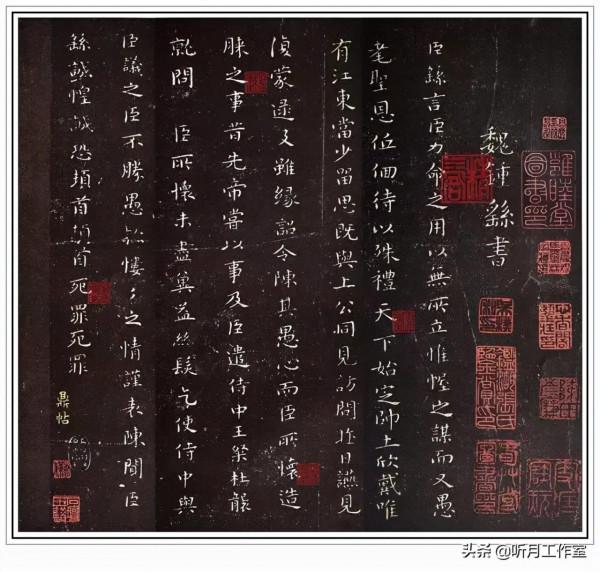 魏鍾繇書
臣繇言臣力命之用以無所立惟幄之謀而又愚
耄聖恩低佪待以殊禮天下始定帥土欣戴唯
有江東當少留思既與上公同見訪問昨日讌見
偵蒙逮及雖緣詔令陳其愚心而臣所懷造
膝之事昔先帝嘗以事及臣遣侍中王粲杜襲
就問 臣所懷未盡冀益絲髮乞使侍中與
臣議之臣不勝愚款慺々之情謹表陳聞臣
繇誠惶誠恐頓首頓首死罪死罪
鼎帖
头条 @听月工作室